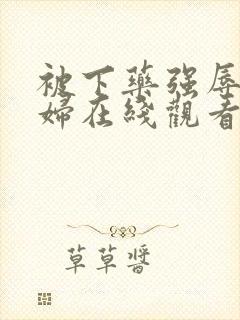 被下藥強辱
婦在綫觀看
草草醬